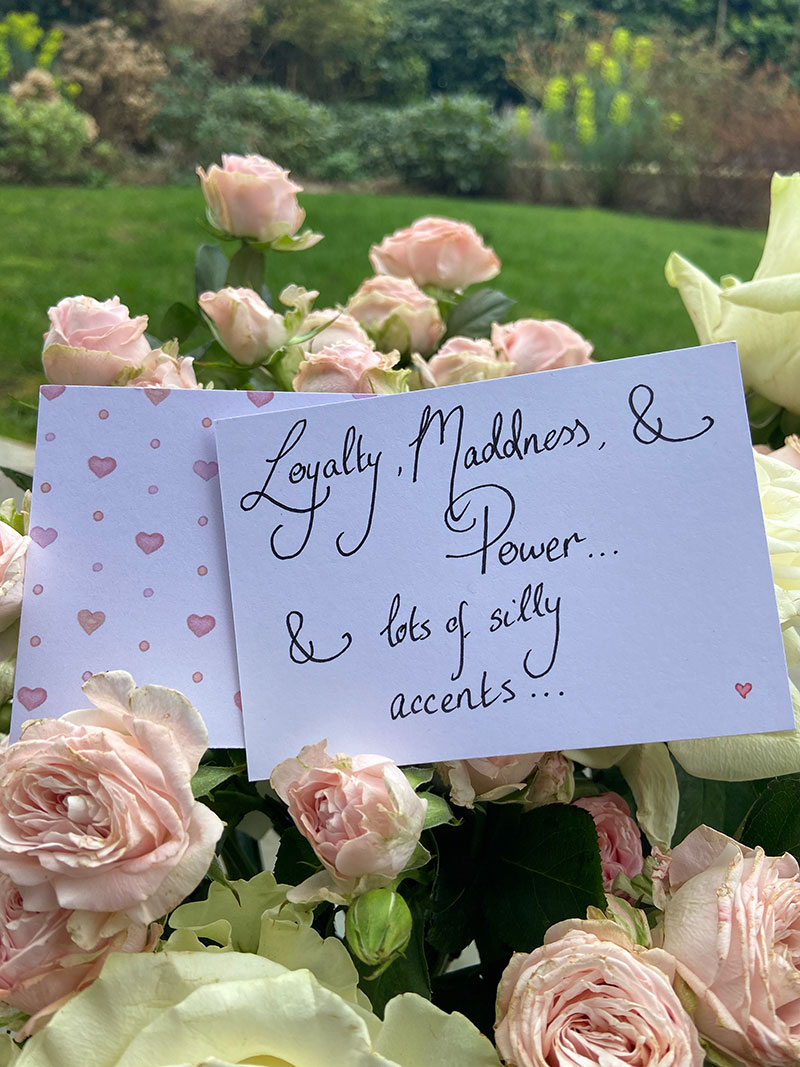 Loyalty, Maddness, &
Power...
& lots of silly
accents...